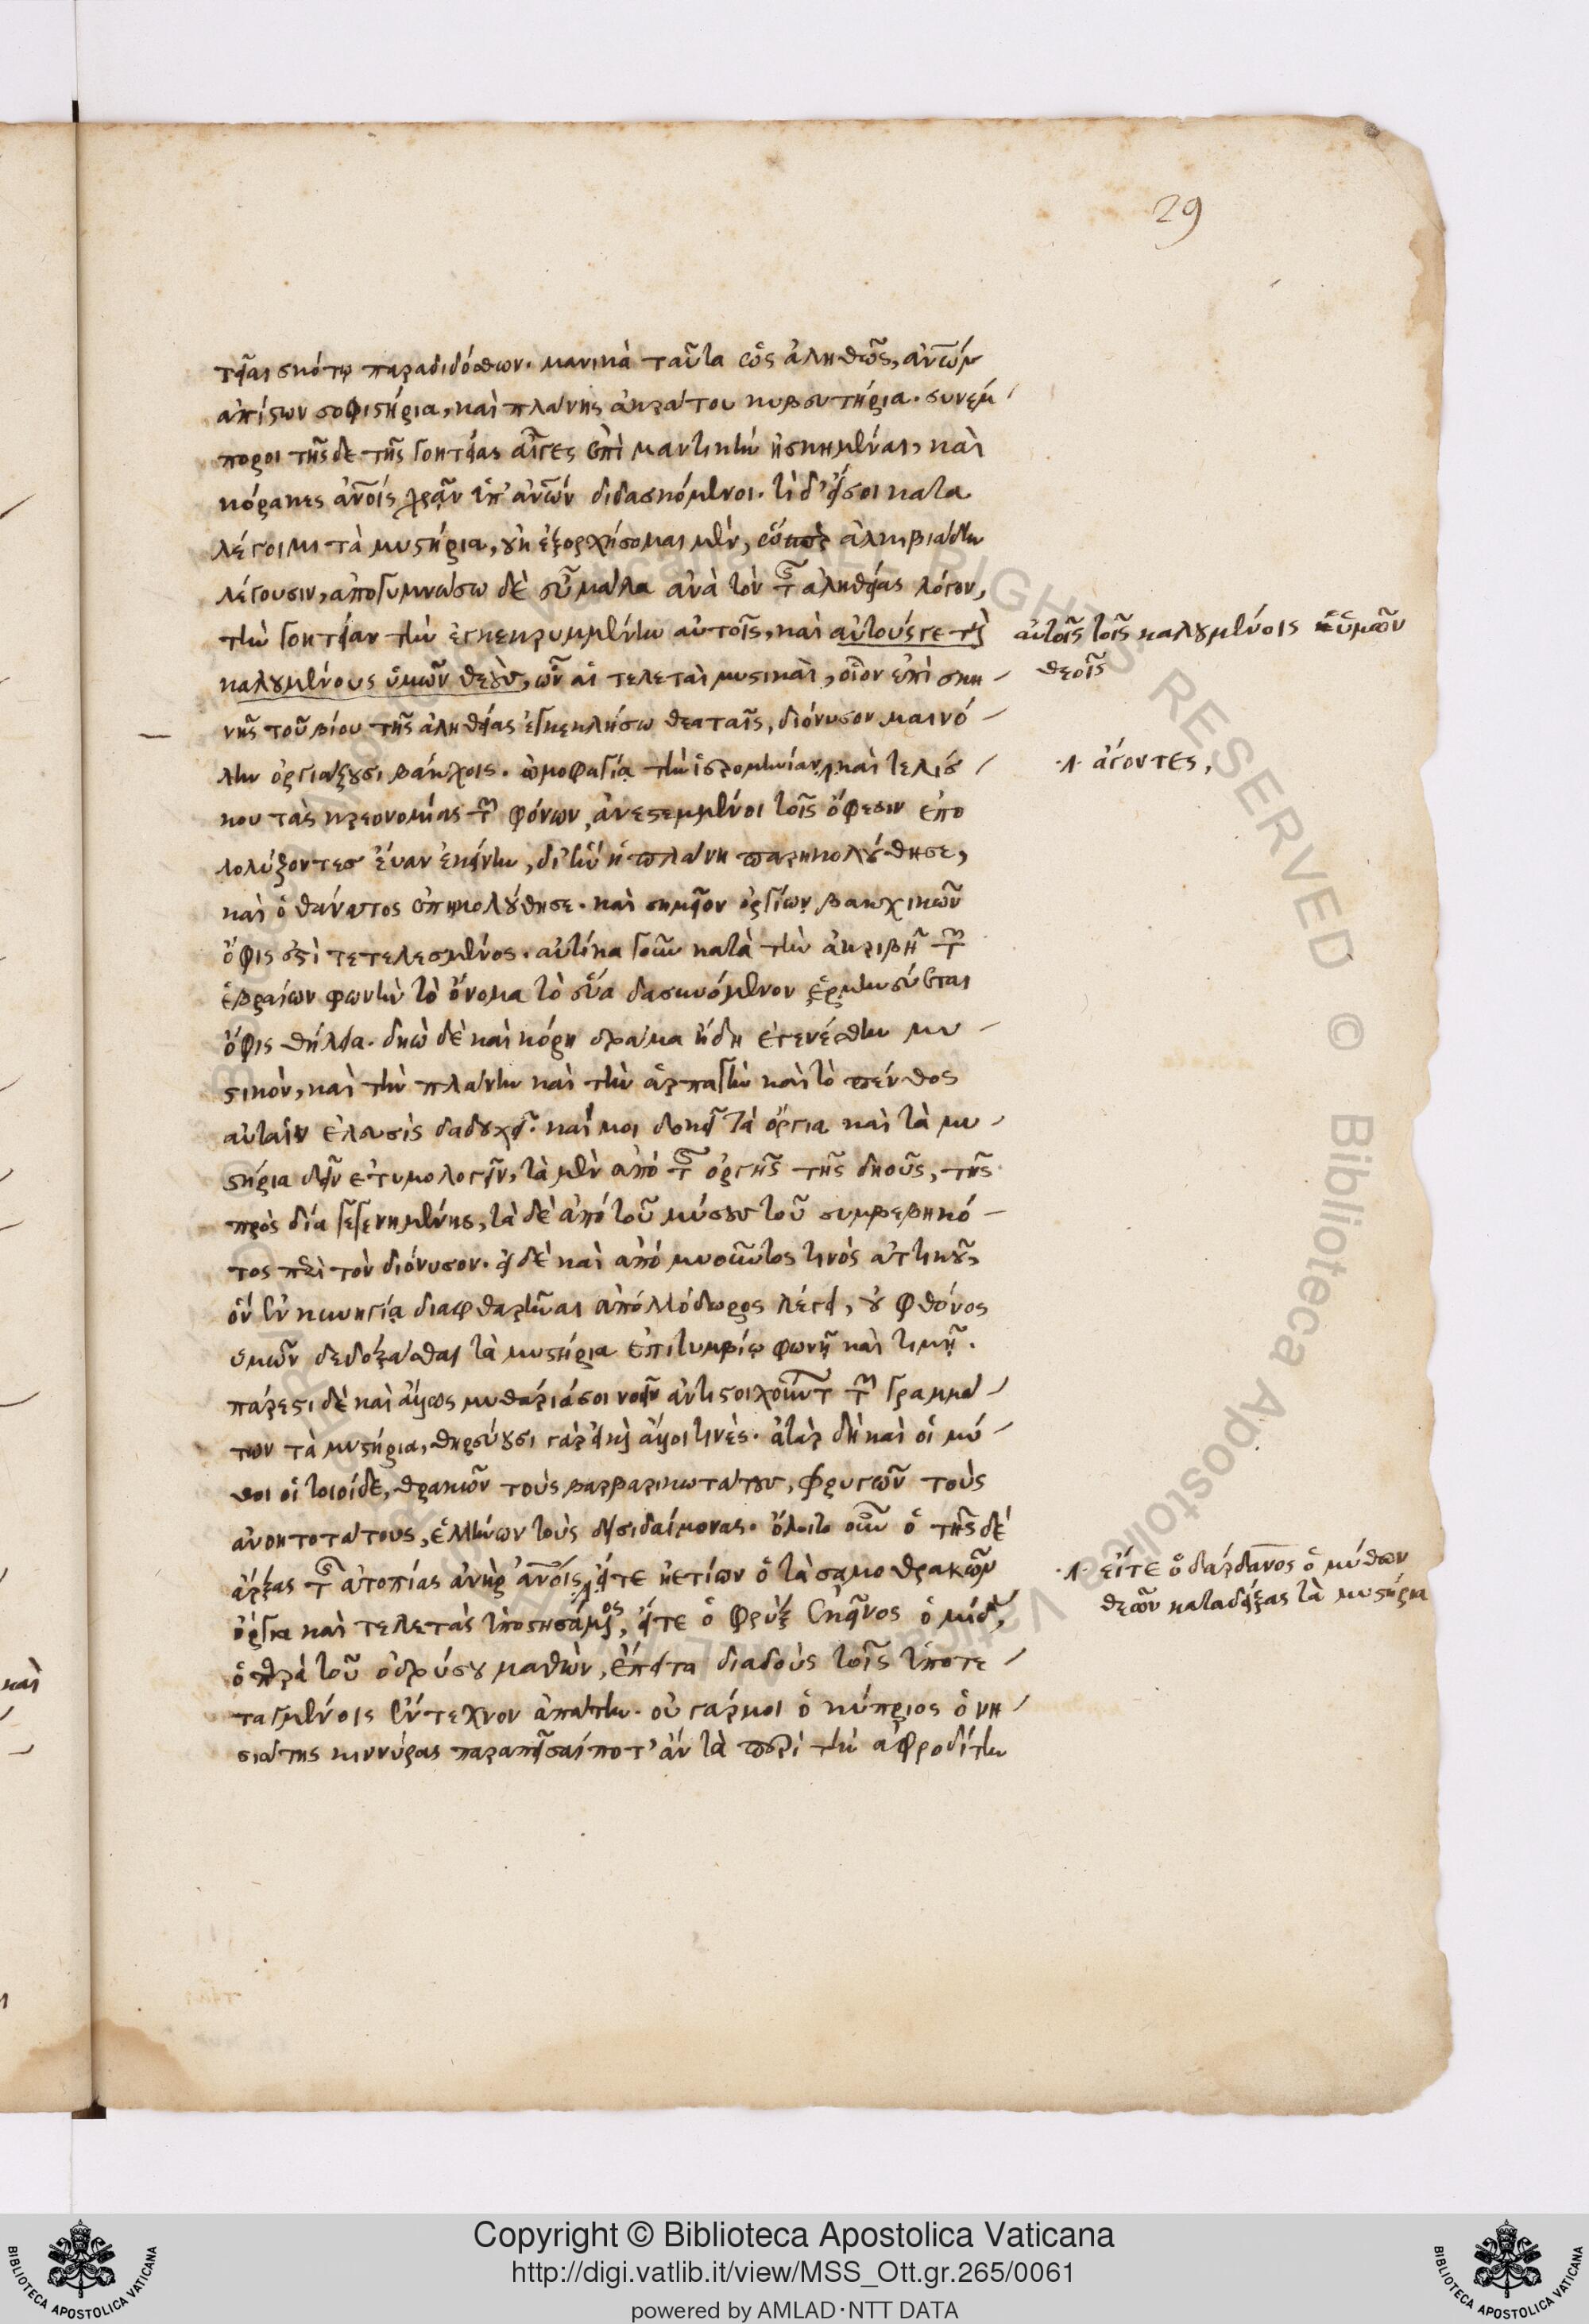 29
τεῖαι σκότῳ παραδιδόσθων. μανικὰ ταῦτα ὡς ἀληθῶς, ἀνων
ἀπίστων σοφιστήρια, καὶ πλάνης ἀκράτου κυβευτήρια. συνέμ
ποροι τῆς δε τῆς γοητείας αἶγες ἐπὶ μαντικὴν ἠσκημέναι, καὶ
κόρακες ἀνοις χρᾶν ὑπ' ἀνων διδασκόμενοι. τί δ' εἴ σοι κατα
λέγοιμι τὰ μυστήρια, οὐκ ἐξορχήσομαι μὲν, ὥσπερ ἀλκιβιάδην
λέγουσιν, ἀπογυμνώσω δὲ εὖ μάλα ἀνὰ τὸν τῆς ἀληθείας λόγον,
τὴν γοητείαν τὴν ἐγκεκρυμμένην αὐτοῖς, καὶ αὐτούς γε τοὺς
καλουμένους ὑμῶν θεοὺς, ὧν αἱ τελεταὶ μυστικαὶ, οἷον ἐπὶ σκη
νῆς τοῦ βίου τῆς ἀληθείας ἐγκεκλήσω θεαταῖς, διόνυσον μαινό
λην ὀργιάζουσι βάκχοις. ὠμοφαγίᾳ τὴν ἱερομηνίαν, καὶ τελίσ
κου τὰς κρεονομίας τῶν φόνων, ἀνεστεμμένοι τοῖς ὄφεσιν ἐπο
λολύζοντες εὔαν ἐκείνην, δι' ἣν ἡ πλάνη παρηκολούθησε,
καὶ ὁ θάνατος ἐπηκολούθησε. καὶ σημεῖον ὀργίων βακχικῶν
ὄφις ἐστὶ τετελεσμένος. αὐτίκα γοῦν κατὰ τὴν ἀκριβῆ τῶν
ἑβραίων φωνὴν τὸ ὄνομα τὸ εὕα δασυνόμενον ἑρμηνεύεται
ὄφις θήλεια. δηὼ δὲ καὶ κόρη δρᾶμα ἤδη ἐγενέσθην μυ
στικὸν, καὶ τὴν πλάνην καὶ τὴν ἁρπαγὴν καὶ τὸ πένθος
αὐταῖν ἐλευσὶς δαδουχεῖ. καί μοι δοκεῖ τὰ ὄργια καὶ τὰ μυ
στήρια δεῖν ἐτυμολογεῖν, τὰ μὲν ἀπὸ τῆς ὀργῆς τῆς δηοῦς, τῆς
πρὸς δία γεγενημένης, τὰ δὲ ἀπὸ τοῦ μύσους τοῦ συμβεβηκό
τος περὶ τὸν διόνυσον. εἰ δὲ καὶ ἀπὸ μυοῦντος τινὸς ἀττικοῦ,
ὃν ἐν κυνηγίᾳ διαφθαρῆναι ἀπολλόδωρος λέγει, οὐ φθόνος
ὑμῶν δεδοξάσθαι τὰ μυστήρια ἐπιτυμβίῳ φωνῇ καὶ τιμῇ.
πάρεστι δὲ καὶ ἄλλως μυθήριά σοι νοεῖν ἀντιστοιχούντ τῶν γραμμά
των τὰ μυστήρια, θηρεύουσι γὰρ εἰ καὶ ἄλλοι τινές. ἀτὰρ δὴ καὶ οἱ μύ
θοι οἱ τοιοίδε, θρακῶν τοὺς βαρβαρικωτάτους, φρυγῶν τοὺς
ἀνοητοτάτους, ἑλλήνων τοὺς δεισιδαίμονας. ὄλοιτο οὖν ὁ τῆς δέ
ἄρξας τῆς ἀτοπίας ἀνὴρ ἀνοις, εἴτε ἠετίων ὁ τὰ σαμοθρακῶν
ὄργια καὶ τελετὰς ὑποστησάμενος, εἴτε ὁ φρὺξ ἐκεῖνος ὁ μίδας,
ὁ παρὰ τοῦ ὀδρύσου μαθὼν, ἔπειτα διαδοὺς τοῖς ὑποτε
ταγμένοις ἔντεχνον ἀπάτην. οὐ γάρ μοι ὁ κύπριος ὁ νη
σιώτης κιννύρας παραπεῖσαί ποτ' ἂν τὰ περὶ τὴν ἀφροδίτην
αὐτοῖς τοῖς καλουμένοις ὑμῶν
θεοῖς
ἄγοντες,
εἴτε ὁ δάρδανος ὁ μύθων
θεῶν καταδείξας τὰ μυστήρια
καὶ
Copyright © Biblioteca Apostolica Vaticana
http://digi.vatlib.it/view/MSS_Ott.gr.265/0061
powered by AMLAD·NTT DATA
BIBLIOTECA APOSTOLICA VATICANA
BIBLIOTECA APOSTOLICA VATICANA